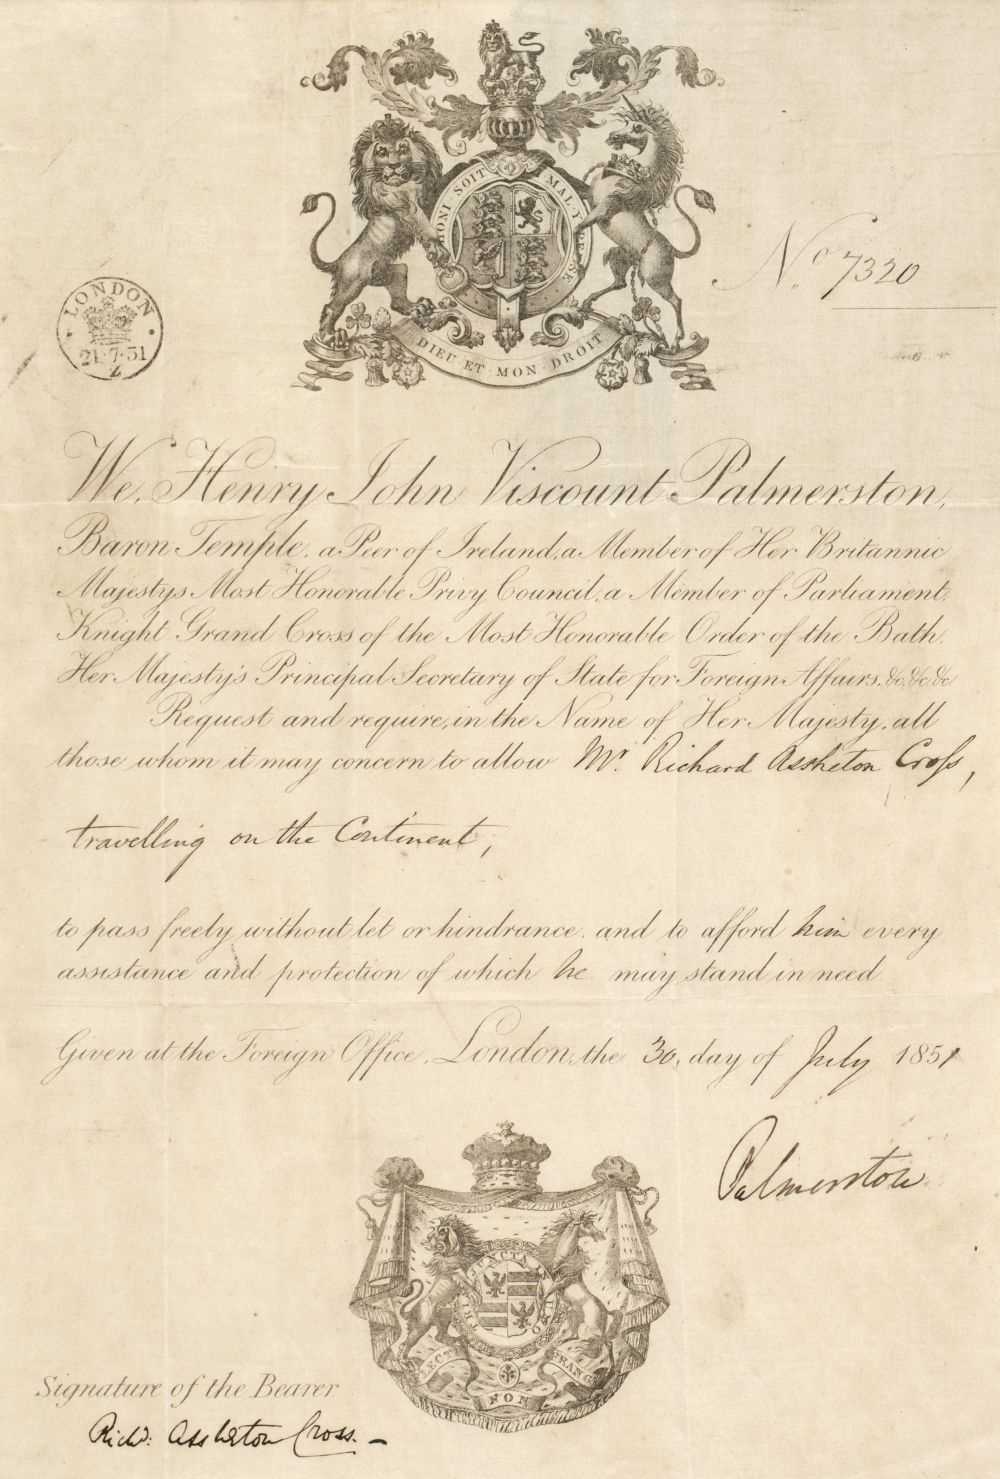 HONI SOIT MAL Y PENSE
DIEU ET MON DROIT
No. 7320
LONDON
21·7·51
Z
We, Henry John Viscount Palmerston,
Baron Temple, a Peer of Ireland, a Member of Her Britannic
Majestys Most Honorable Privy Council, a Member of Parliament,
Knight Grand Cross of the Most Honorable Order of the Bath,
Her Majesty's Principal Secretary of State for Foreign Affairs, &c, &c, &c
Request and require, in the Name of Her Majesty, all
those whom it may concern to allow Mr. Richard Assheton Cross,
travelling on the Continent,
to pass freely without let or hindrance, and to afford him every
assistance and protection of which he may stand in need
Given at the Foreign Office, London, the 30, day of July 1851
Palmerston
TRIA JUNCTA
FLECTI NON FRANGI
Signature of the Bearer
Richd: Assheton Cross. –